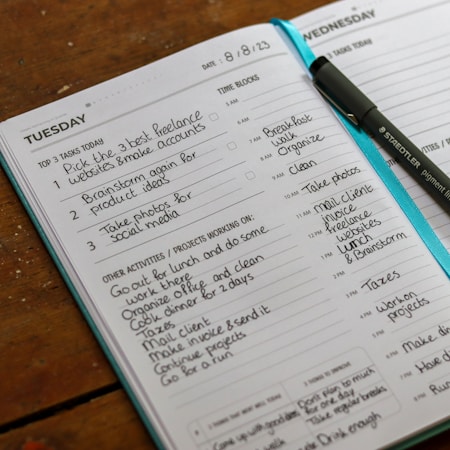 TUESDAY
DATE: 8/8/23
TOP 3 TASKS TODAY
1 Pick the 3 best freelance
websites & make accounts
2 Brainstorm again for
product ideas
3 Take photos for
social media
OTHER ACTIVITIES / PROJECTS WORKING ON:
Go out for lunch and do some
work there
Organize office and clean
Cook dinner for 2 days
Taxes
Mail client
Make invoice & send it
Continue projects
Go for a run
TIME BLOCKS
5 AM
6 AM
7 AM Breakfast
walk
8 AM Organize
9 AM Clean
10 AM Take photos
11 AM Mail client
invoice
12 PM freelance
websites
1 PM Lunch
& Brainstorm
2 PM
3 PM Taxes
4 PM
5 PM Work on
projects
6 PM Make din
7 PM Have di
8 PM Run
3 THINGS THAT WENT WELL TODAY
Come up with good
walk
3 THINGS TO IMPROVE
Don't plan to much
for one day
Take regular breaks
Drink enough
WEDNESDAY
TOP 3 TASKS TODAY
1
2
3
STAEDTLER
pigment lin